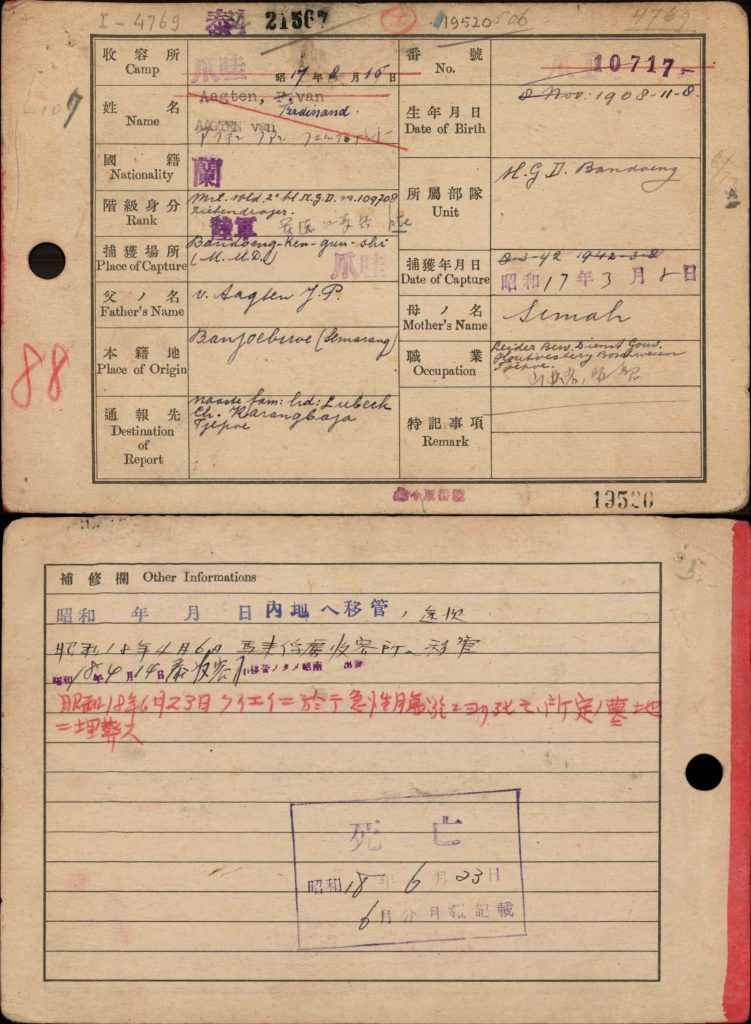 I-4769
泰
21567
19520
4769
收容所
Camp
爪哇
昭17年8月15日
番號
No.
10717-
姓名
Name
Aagten, F. van
Ferdinand.
AAGTEN Van
アクテン ファン
生年月日
Date of Birth
8 Nov: 1908-11-8.
國籍
Nationality
蘭
所屬部隊
Unit
M.G.D. Bandoeng
階級身分
Rank
Mil. sold. 2e kl. M.G.D. no. 109708
Ziekendrager.
陸軍
捕獲場所
Place of Capture
Bandoeng-Ken-gun-shi
爪哇
捕獲年月日
Date of Capture
8-3-42 1942-3-8
昭和17年3月8日
父ノ名
Father's Name
v. Aagten J.P.
母ノ名
Mother's Name
Semah
本籍地
Place of Origin
Banjoebiroe (Semarang)
職業
Occupation
Tjepoe.
通報先
Destination of Report
naaste fam: lid: Lubeck
Ch. Karangbajo
Tjepoe
特記事項
Remark
88
19520
補修欄 Other Informations
昭和 年 月 日 內地へ移管
昭和18年4月6日 馬來俘虜收容所へ移管
昭和18年4月14日泰
移管ノタメ昭南
昭和18年6月23日 クイエイニ於テ急性腸炎ニヨリ死亡所定ノ墓地
ニ埋葬ス
死亡
昭和18年6月23日
6月分月報記載